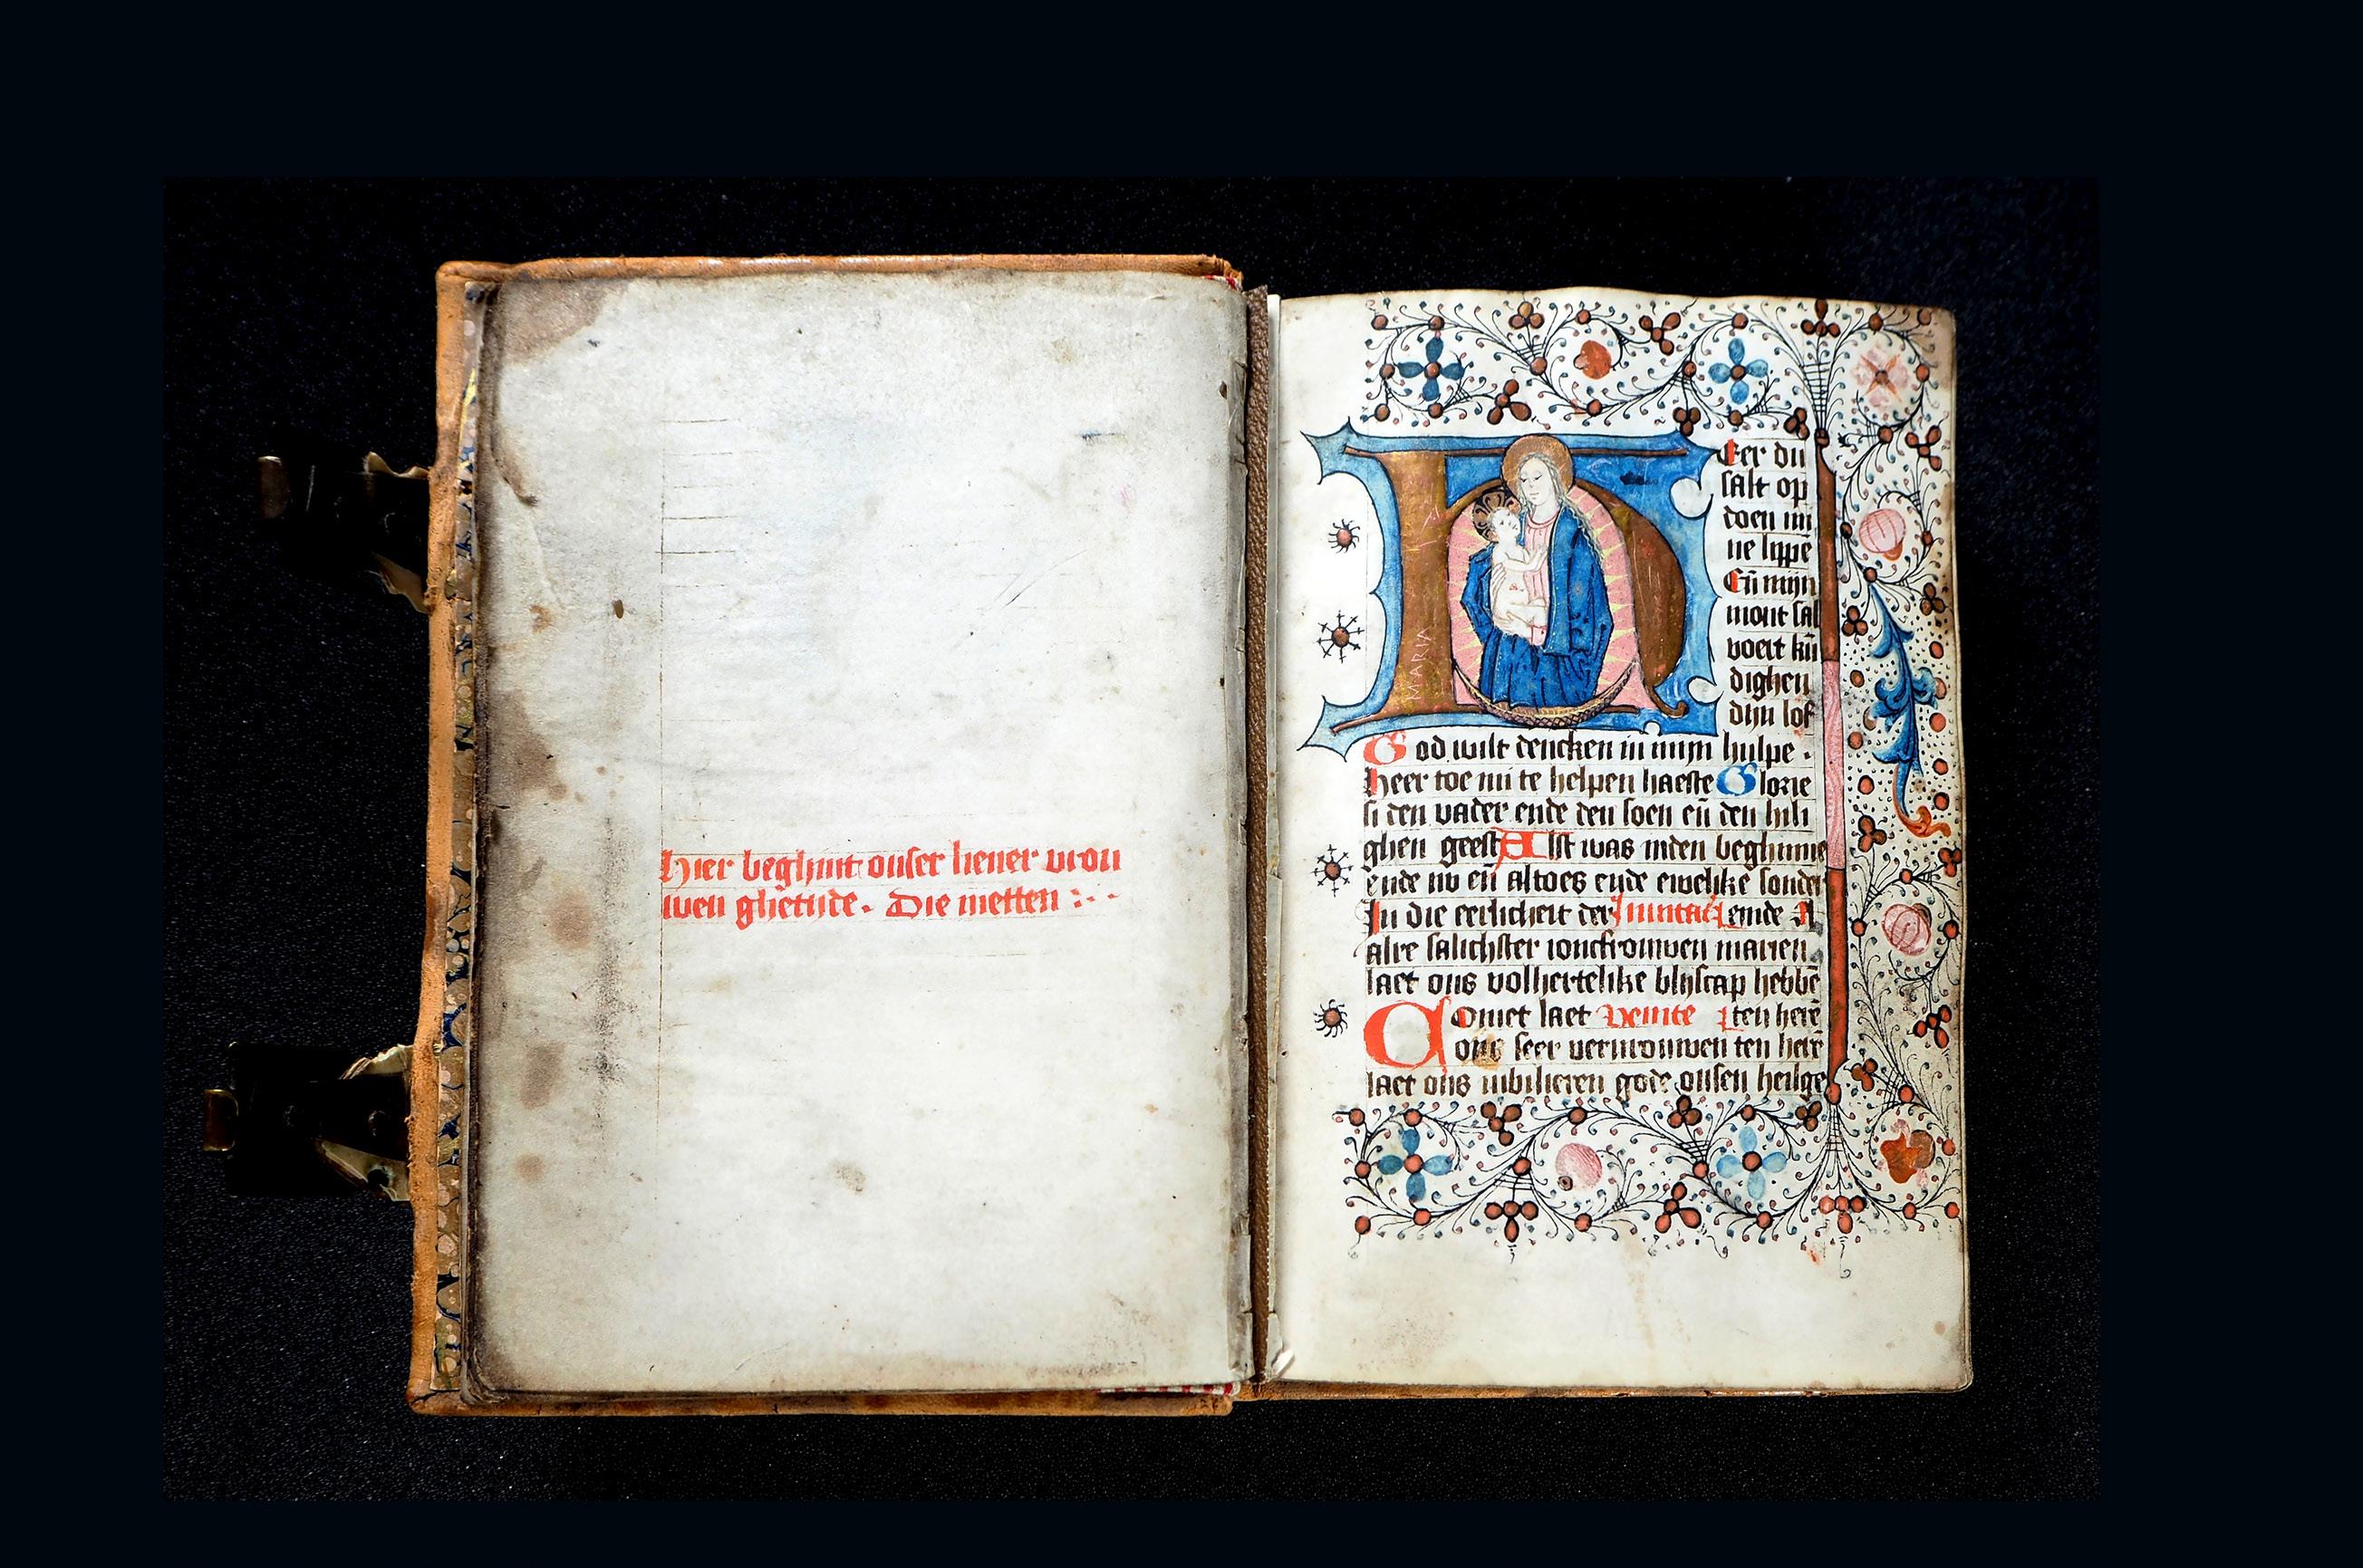 Hier beghint onser liener vrou
wen ghetide. Die metten :. .
MARIA
Heer du
salt op
doen mi
ne lippē
Eñ mijn
mont sal
voert kū
dighen
dijn lof
God wilt dencken in mijn hulpe.
heer toe mi te helpen haeste Glorie
si den vader ende den soen eñ den hili
ghen geest Alst was inden beghinne
ende nv eñ altoes ende ewelike sonder
In die eerlicheit der Inuitaͭ einde A
alre salichster ioncfrouwen marien
laet ons volhertelike blijscap hebbē
Comet laet Venite ten herē
ons seer vervrouwen ten herē
laet ons iubilieren gode onsen heilge